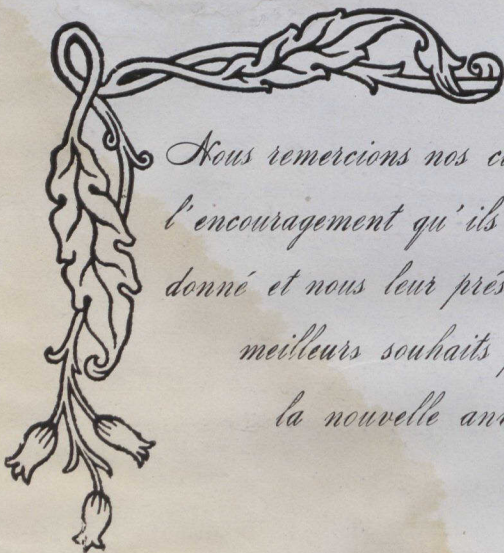 Nous remercions nos c
l'encouragement qu'ils
donné et nous leur prés
meilleurs souhaits p
la nouvelle ann